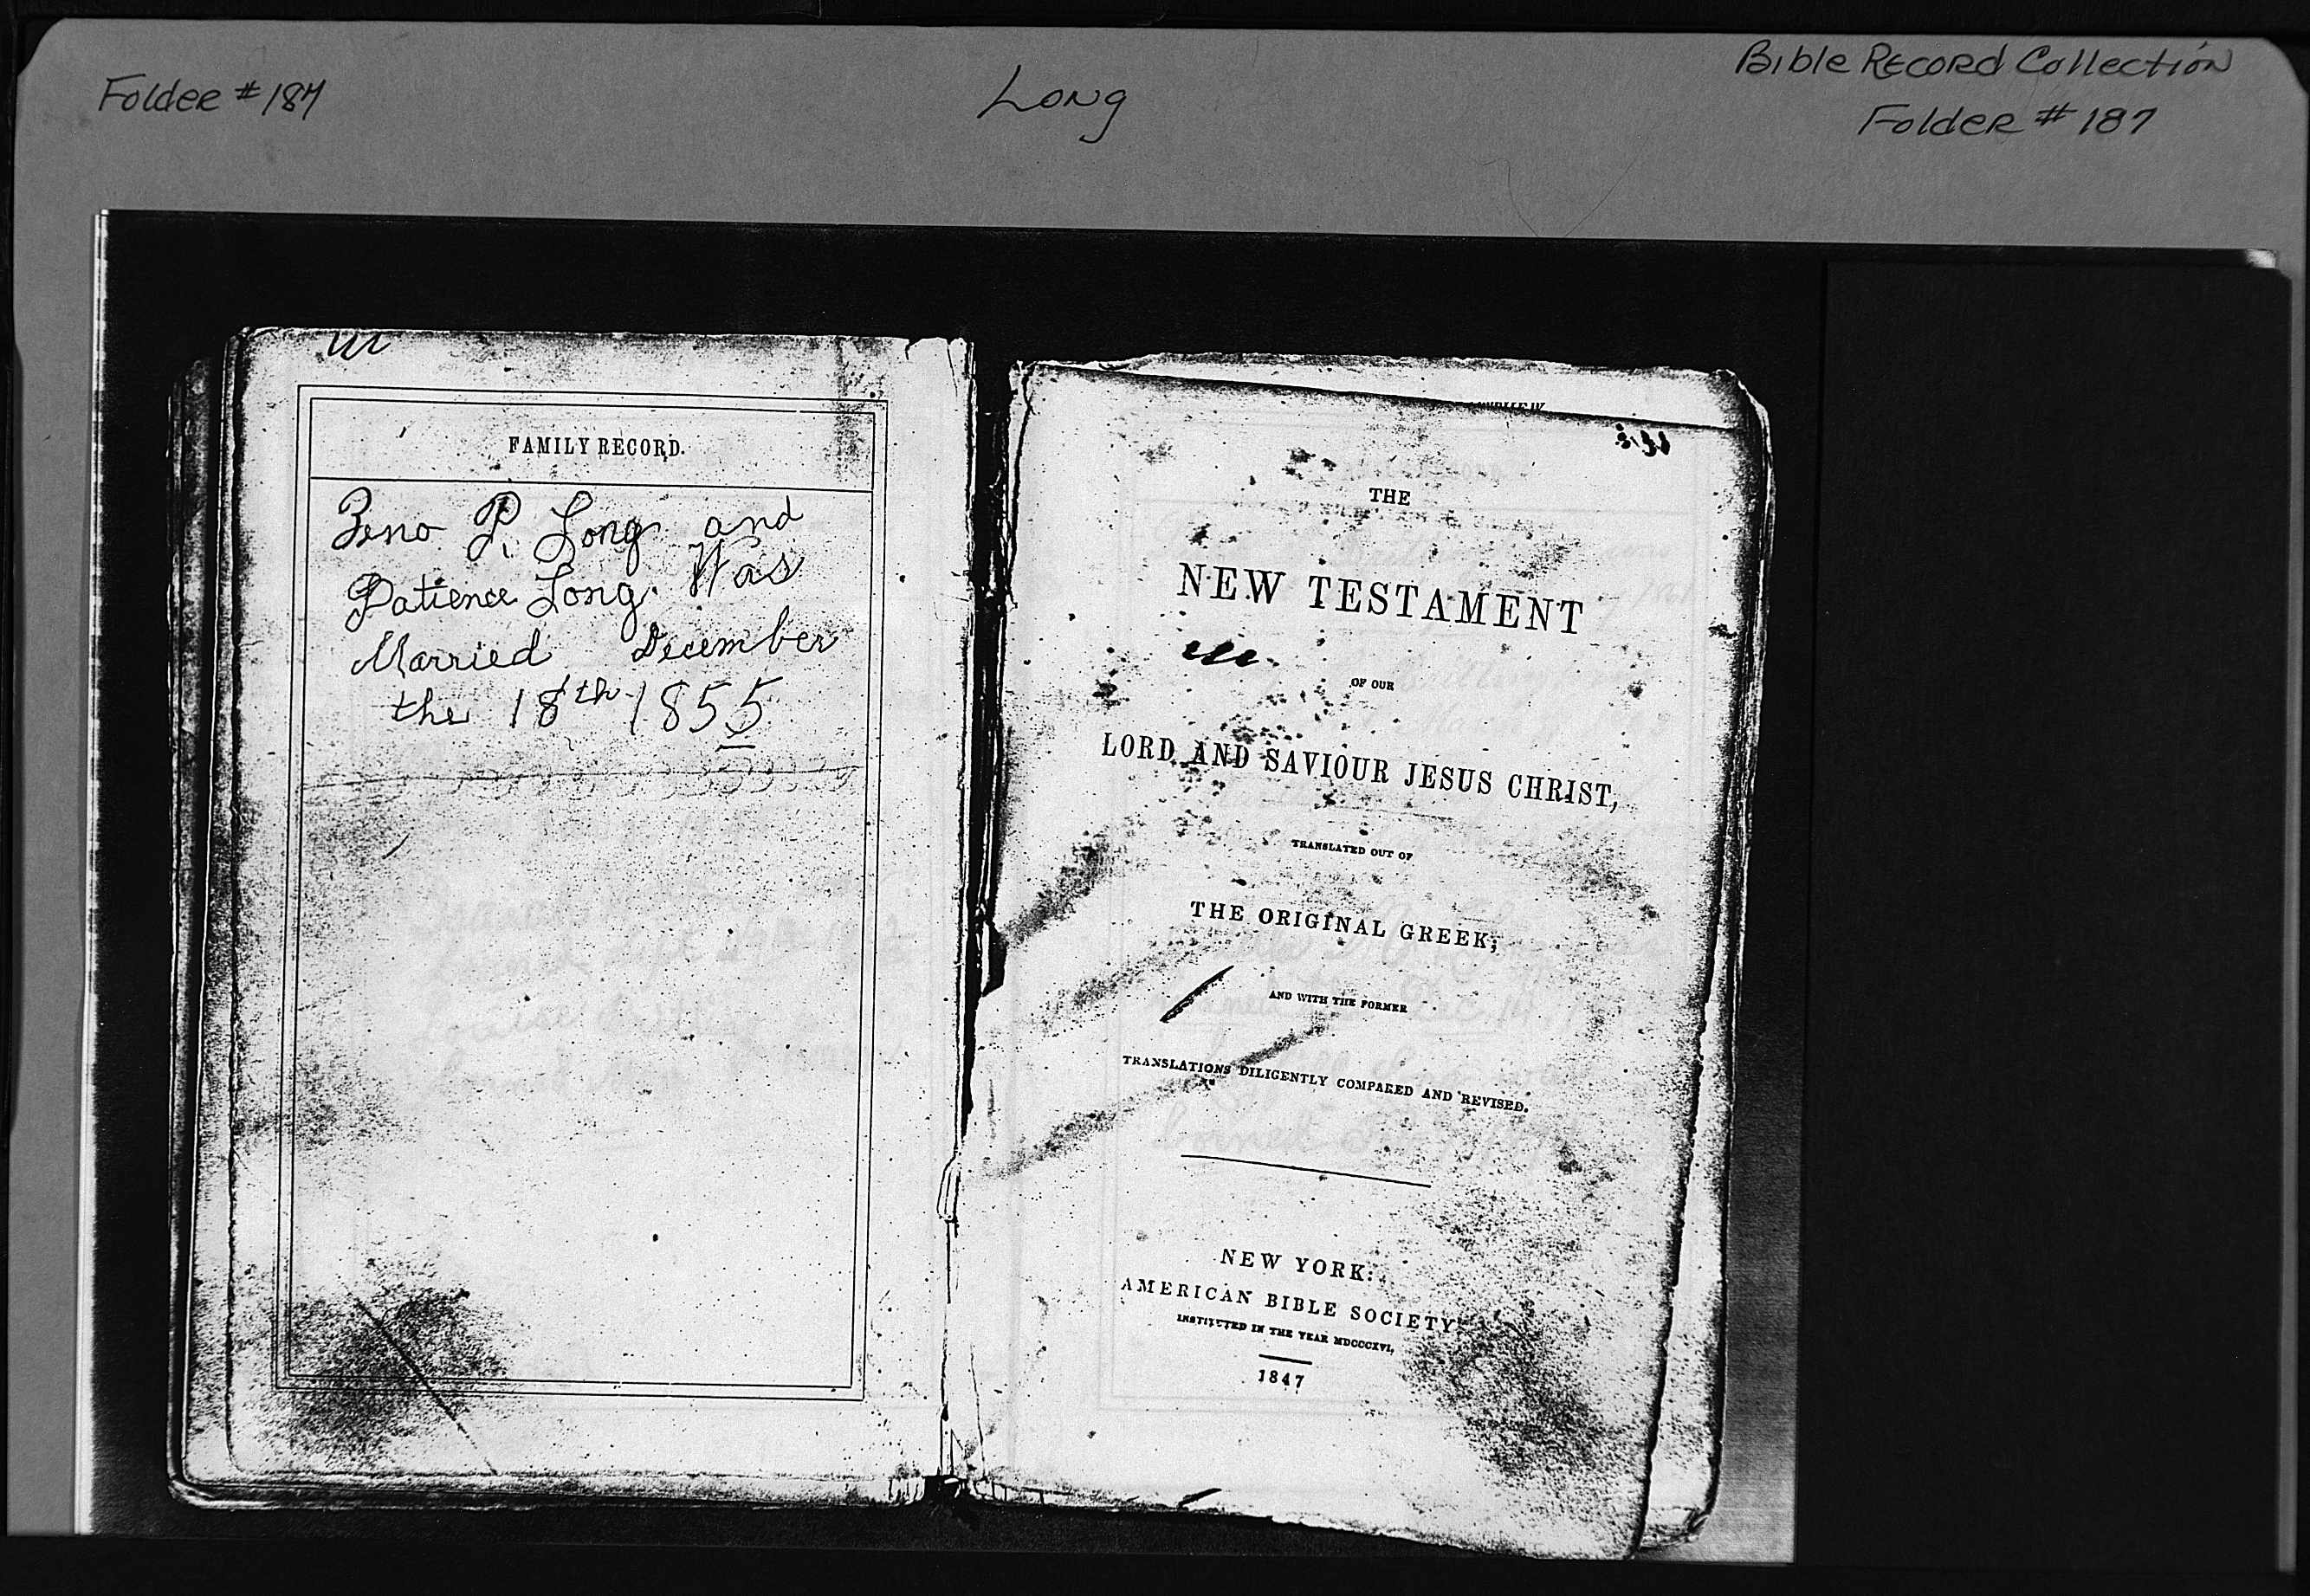 Folder # 187
Long
Bible Record Collection
Folder # 187
FAMILY RECORD.
Zeno P. Long and
Patience Long. Was
Married December
the 18th 1855
THE
NEW TESTAMENT
OF OUR
LORD AND SAVIOUR JESUS CHRIST,
TRANSLATED OUT OF
THE ORIGINAL GREEK;
AND WITH THE FORMER
TRANSLATIONS DILIGENTLY COMPARED AND REVISED.
NEW YORK:
AMERICAN BIBLE SOCIETY
INSTITUTED IN THE YEAR MDCCCXVI,
1847